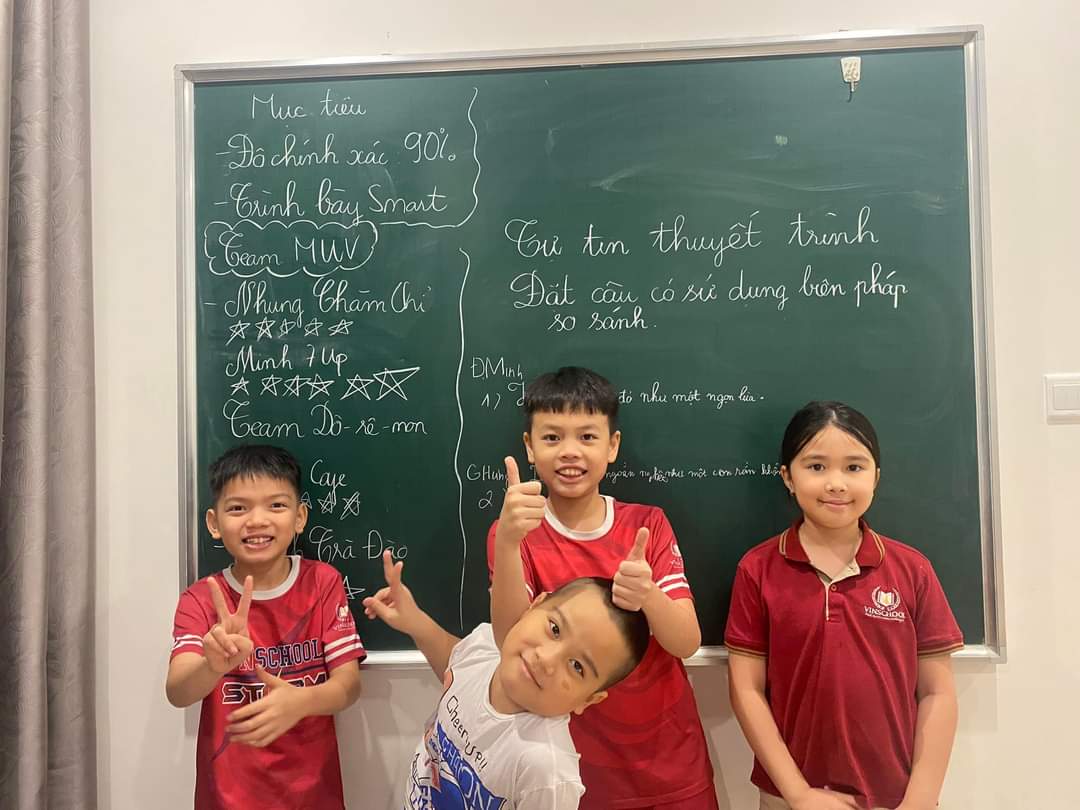 Mục tiêu
- Độ chính xác 90%
- Trình bày Smart
Team MUV
- Nhung Chăm Chỉ
Minh 7 Up
Team Dô-rê-mon
Caye
Trà Đào
Tự tin thuyết trình
Đặt câu có sử dụng biên pháp
so sánh.
Đ.Minh
1) đỏ như một ngọn lửa.
GHưng
2 như một con rắn
VINSCHOOL
NSCHOOL
Cheer up!!
VINSCHOOL